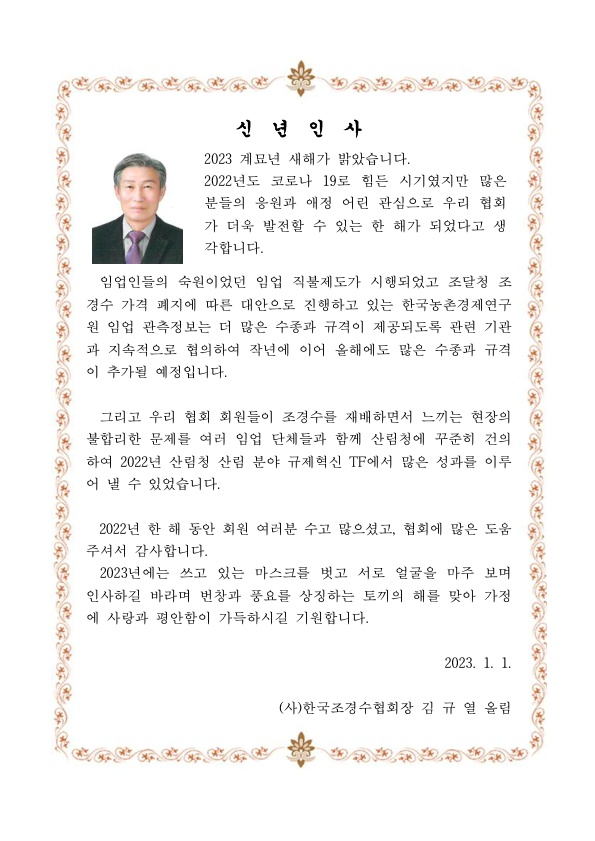 신 년 인 사
2023 계묘년 새해가 밝았습니다.
2022년도 코로나 19로 힘든 시기였지만 많은
분들의 응원과 애정 어린 관심으로 우리 협회
가 더욱 발전할 수 있는 한 해가 되었다고 생
각합니다.
임업인들의 숙원이었던 임업 직불제도가 시행되었고 조달청 조
경수 가격 폐지에 따른 대안으로 진행하고 있는 한국농촌경제연구
원 임업 관측정보는 더 많은 수종과 규격이 제공되도록 관련 기관
과 지속적으로 협의하여 작년에 이어 올해에도 많은 수종과 규격
이 추가될 예정입니다.
그리고 우리 협회 회원들이 조경수를 재배하면서 느끼는 현장의
불합리한 문제를 여러 임업 단체들과 함께 산림청에 꾸준히 건의
하여 2022년 산림청 산림 분야 규제혁신 TF에서 많은 성과를 이루
어 낼 수 있었습니다.
2022년 한 해 동안 회원 여러분 수고 많으셨고, 협회에 많은 도움
주셔서 감사합니다.
2023년에는 쓰고 있는 마스크를 벗고 서로 얼굴을 마주 보며
인사하길 바라며 번창과 풍요를 상징하는 토끼의 해를 맞아 가정
에 사랑과 평안함이 가득하시길 기원합니다.
2023. 1. 1.
(사)한국조경수협회장 김 규 열 올림